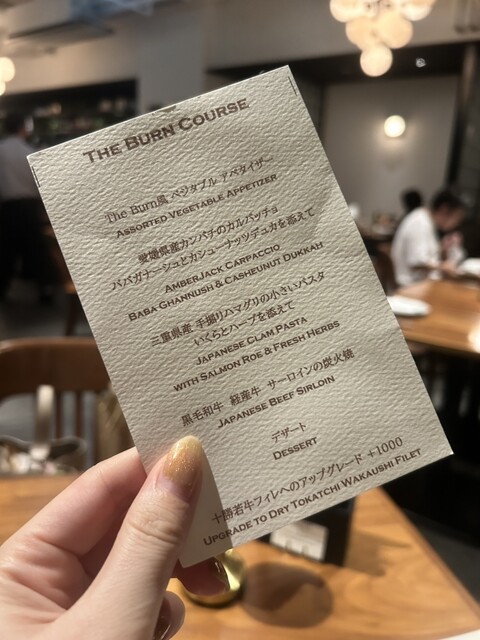 THE BURN COURSE
The Burn風 ベジタブル アペタイザー
ASSORTED VEGETABLE APPETIZER
愛媛県産カンパチのカルパッチョ
ババガナーシュとカシューナッツデュカを添えて
AMBERJACK CARPACCIO
BABA GHANNUSH & CASHEUNUT DUKKAH
三重県産 手掘りハマグリの小さいパスタ
いくらとハーブを添えて
JAPANESE CLAM PASTA
WITH SALMON ROE & FRESH HERBS
黒毛和牛 経産牛 サーロインの炭火焼
JAPANESE BEEF SIRLOIN
デザート
DESSERT
十勝若牛フィレへのアップグレード +1000
UPGRADE TO DRY TOKATCHI WAKAUSHI FILET